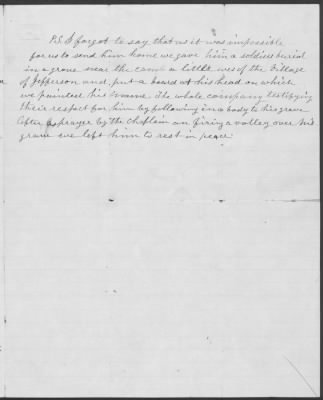 P.S. I forgot to say that as it was impossible
for us to send him home we gave him a soldiers burial
in a grove near the camp a little west of the Village
of Jefferson and put a board at his head on which
we painted his name. The whole company testifying
their respect for him by following in a body to his grave
After a prayer by the Chaplain an firing a volley over his
grave we left him to rest in peace